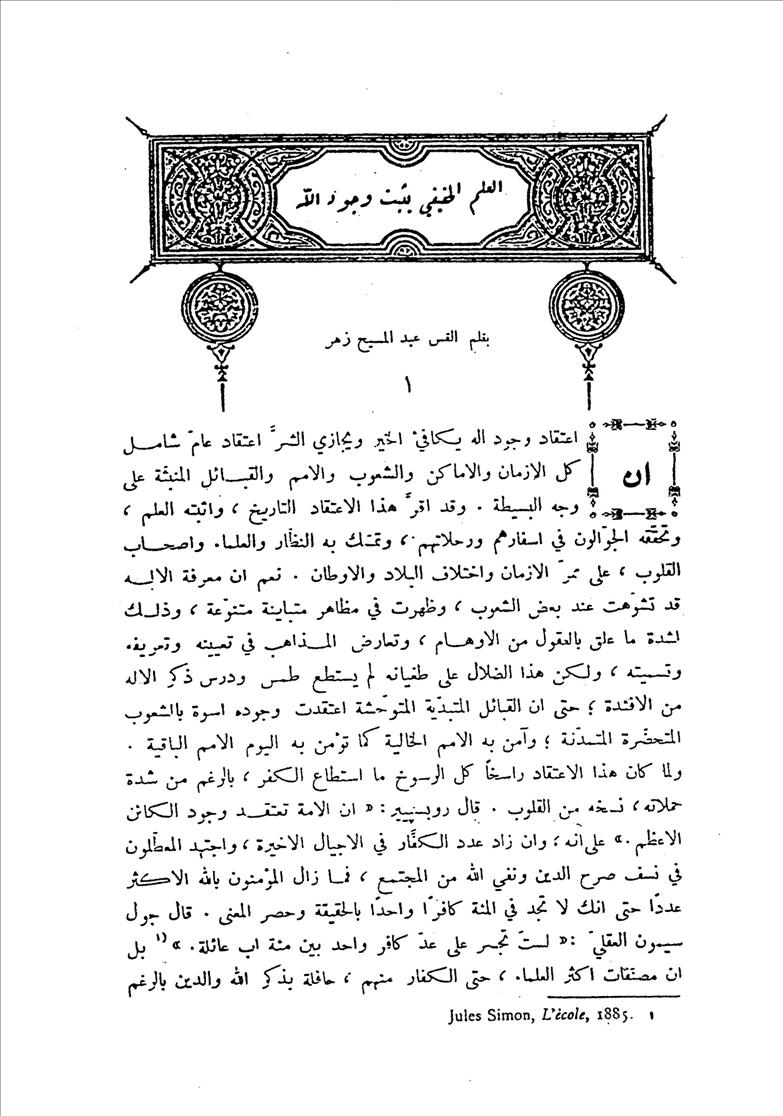 العلم الحقيقي يثبت وجود الله
بقلم القس عبد المسيح زهر
١
ان اعتقاد وجود اله يكافئ الخير ويجازي الشرَّ اعتقاد عامّ شامل
كل الازمان والاماكن والشعوب والامم والقبائل المنبثّة على
وجه البسيطة . وقد اقرَّ هذا الاعتقاد التاريخ ، واثبته العلم ،
وتحقّقه الجوّالون في اسفارهم ورحلاتهم ، وتمسّك به النظّار والعلماء واصحاب
القلوب ، على ممرّ الازمان واختلاف البلاد والاوطان . نعم ان معرفة الاله
قد تشوّهت عند بعض الشعوب ، وظهرت في مظاهر متباينة متنوّعة ، وذلك
لشدة ما علق بالعقول من الاوهام ، وتعارض المذاهب في تعيينه وتعريفه
وتسميته ، ولكن هذا الضلال على طغيانه لم يستطع طمس ودرس ذكر الاله
من الافئدة ؛ حتى ان القبائل المتبدّية المتوحّشة اعتقدت وجوده اسوة بالشعوب
المتحضّرة المتمدّنة ؛ وآمن به الامم الخالية كما تؤمن به اليوم الامم الباقية .
ولما كان هذا الاعتقاد راسخاً كل الرسوخ ما استطاع الكفر ، بالرغم من شدة
حملاته ، نسخه من القلوب . قال روبسپير : « ان الامة تعتقد وجود الكائن
الاعظم . » على انه ، وان زاد عدد الكفَّار في الاجيال الاخيرة ، واجتهد المعطّلون
في نسف صرح الدين ونفي الله من المجتمع ، فما زال المؤمنون بالله الاكثر
عددًا حتى انك لا تجد في المئة كافرًا واحدًا بالحقيقة وحصر المعنى . قال جول
سيمون العقليّ : « لستَ تجسر على عدّ كافر واحد بين مئة اب عائلة . » (١ بل
ان مصنّفات اكثر العلماء ، حتى الكفار منهم ، حافلة بذكر الله والدين بالرغم
Jules Simon, L'école, 1885. ١